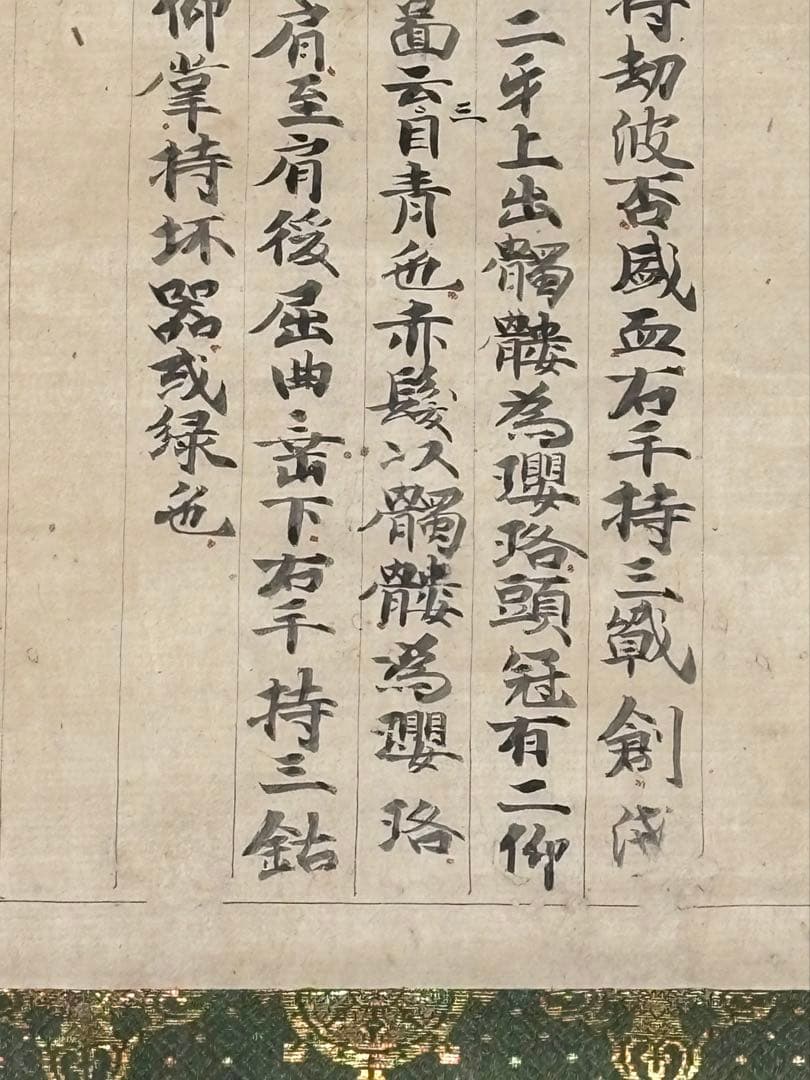 持劫波否盛血右手持三戟創
二牙上出髑髏為瓔珞頭冠有二仰
啚云三目青也赤髮以髑髏為瓔珞
肩至肩後屈曲垂下右手持三鈷
仰掌持坏器或緑色